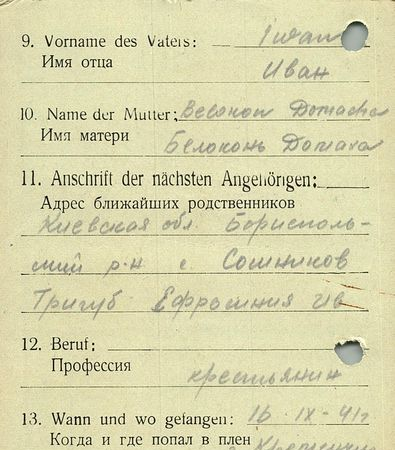 9. Vorname des Vaters: Iwan
Имя отца Иван
10. Name der Mutter: Belokon Domacha
Имя матери Белоконь Домаха
11. Anschrift der nächsten Angehörigen:
Адрес ближайших родственников
Киевская обл. Борисполь-
ский р-н с. Сошников
Тригуб Ефросиния Ив
12. Beruf:
Профессия крестьянин
13. Wann und wo gefangen: 16-IX-41г
Когда и где попал в плен